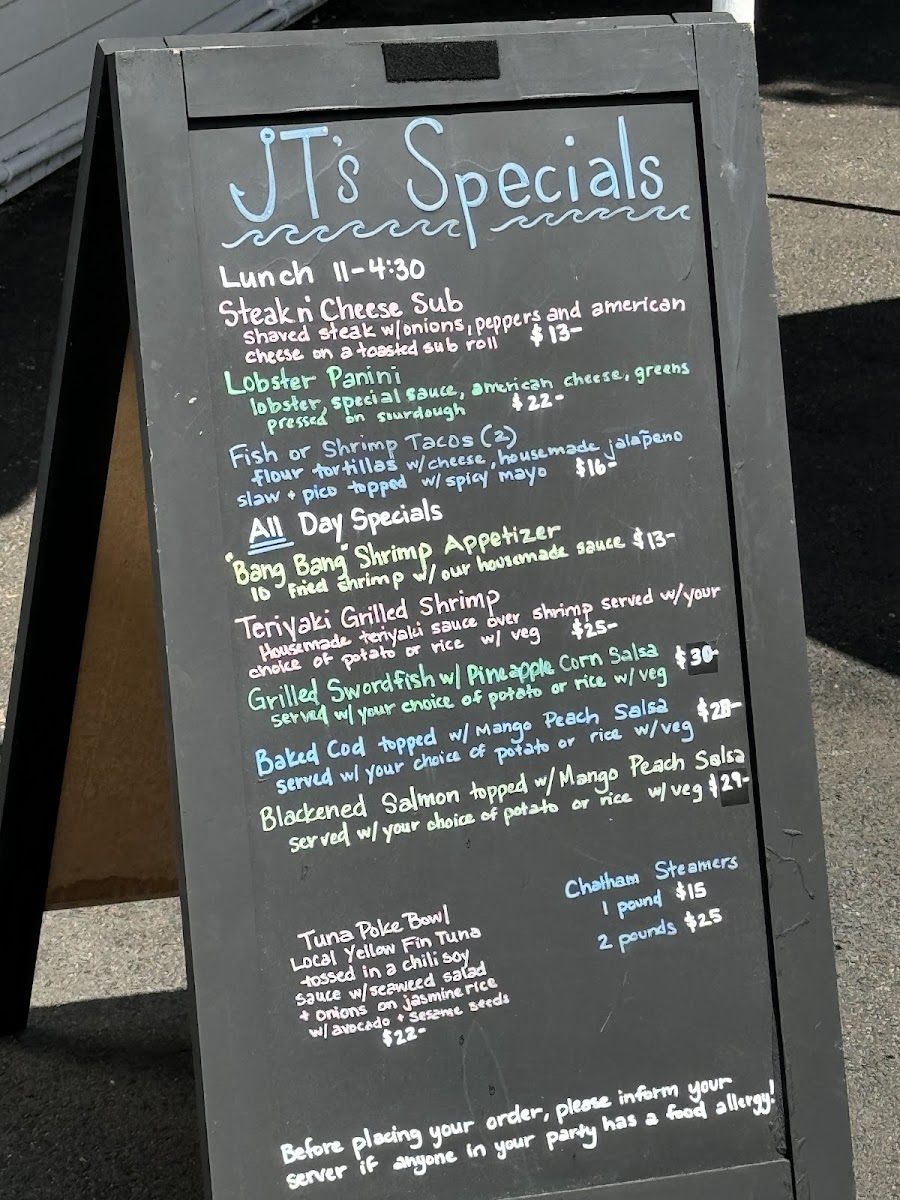 JT's Specials
Lunch 11-4:30
Steak n' Cheese Sub
shaved steak w/onions, peppers and american
cheese on a toasted sub roll $13-
Lobster Panini
lobster, special sauce, american cheese, greens
pressed on sourdough $22-
Fish or Shrimp Tacos (2)
flour tortillas w/cheese, housemade jalapeño
slaw + pico topped w/spicy mayo $16-
All Day Specials
"Bang Bang" Shrimp Appetizer
10 fried shrimp w/ our housemade sauce $13-
Teriyaki Grilled Shrimp
Housemade teriyaki sauce over shrimp served w/your
choice of potato or rice w/ veg $25-
Grilled Swordfish w/ Pineapple Corn Salsa $30-
served w/ your choice of potato or rice w/ veg
Baked Cod topped w/ Mango Peach Salsa $28-
served w/ your choice of potato or rice w/veg
Blackened Salmon topped w/Mango Peach Salsa
served w/ your choice of potato or rice w/ veg $29-
Chatham Steamers
1 pound $15
2 pounds $25
Tuna Poke Bowl
Local Yellow Fin Tuna
tossed in a chili soy
sauce w/seaweed salad
+ onions on jasmine rice
w/ avocado + sesame seeds
$22-
Before placing your order, please inform your
server if anyone in your party has a food allergy!